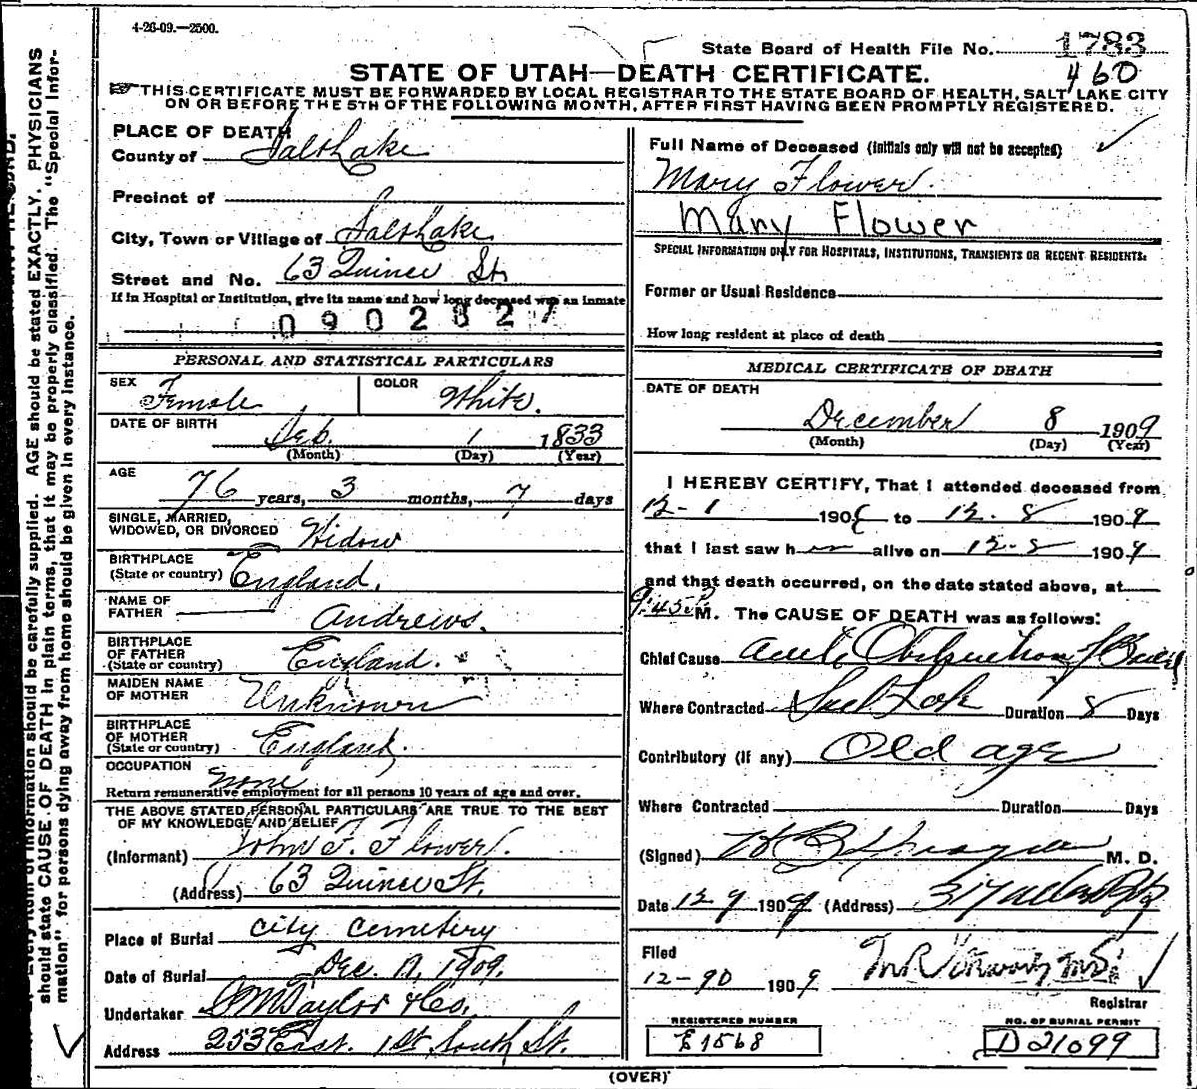 4-26-09.—2500.
State Board of Health File No. 1783
460
STATE OF UTAH—DEATH CERTIFICATE.
THIS CERTIFICATE MUST BE FORWARDED BY LOCAL REGISTRAR TO THE STATE BOARD OF HEALTH, SALT LAKE CITY
ON OR BEFORE THE 5TH OF THE FOLLOWING MONTH, AFTER FIRST HAVING BEEN PROMPTLY REGISTERED.
PLACE OF DEATH
County of Salt Lake
Precinct of
City, Town or Village of Salt Lake
Street and No. 63 Quince St.
If in Hospital or Institution, give its name and how long deceased was an inmate
0902827
PERSONAL AND STATISTICAL PARTICULARS
SEX Female COLOR White.
DATE OF BIRTH Feb. 1 1833
(Month) (Day) (Year)
AGE 76 years, 3 months, 7 days
SINGLE, MARRIED,
WIDOWED, OR DIVORCED Widow
BIRTHPLACE
(State or country) England.
NAME OF
FATHER Andrews.
BIRTHPLACE
OF FATHER
(State or country) England.
MAIDEN NAME
OF MOTHER Unknown
BIRTHPLACE
OF MOTHER
(State or country) England.
OCCUPATION none
Return remunerative employment for all persons 10 years of age and over.
THE ABOVE STATED PERSONAL PARTICULARS ARE TRUE TO THE BEST
OF MY KNOWLEDGE AND BELIEF
(Informant) John T. Flower.
(Address) 63 Quince St.
Place of Burial City Cemetery
Date of Burial Dec. 1909.
Undertaker Taylor & Co.
Address 253 East. 1st South St.
Full Name of Deceased (initials only will not be accepted)
Mary Flower.
Mary Flower
SPECIAL INFORMATION ONLY FOR HOSPITALS, INSTITUTIONS, TRANSIENTS OR RECENT RESIDENTS.
Former or Usual Residence
How long resident at place of death
MEDICAL CERTIFICATE OF DEATH
DATE OF DEATH
December 8 1909
(Month) (Day) (Year)
I HEREBY CERTIFY, That I attended deceased from
12-1 190 to 12-8 1909
that I last saw her alive on 12-8 1909
and that death occurred, on the date stated above, at
9:45 M. The CAUSE OF DEATH was as follows:
Chief Cause Acute Obstruction of Bowel
Where Contracted Salt Lake Duration 8 Days
Contributory (if any) Old age
Where Contracted Duration Days
(Signed) M. D.
Date 12 9 1909 (Address)
Filed
12-90 1909
Registrar
REGISTERED NUMBER
E1568
NO. OF BURIAL PERMIT
D 21099
(OVER)
Every item of information should be carefully supplied. AGE should be stated EXACTLY. PHYSICIANS
should state CAUSE OF DEATH in plain terms, that it may be properly classified. The "Special Infor-
mation" for persons dying away from home should be given in every instance.